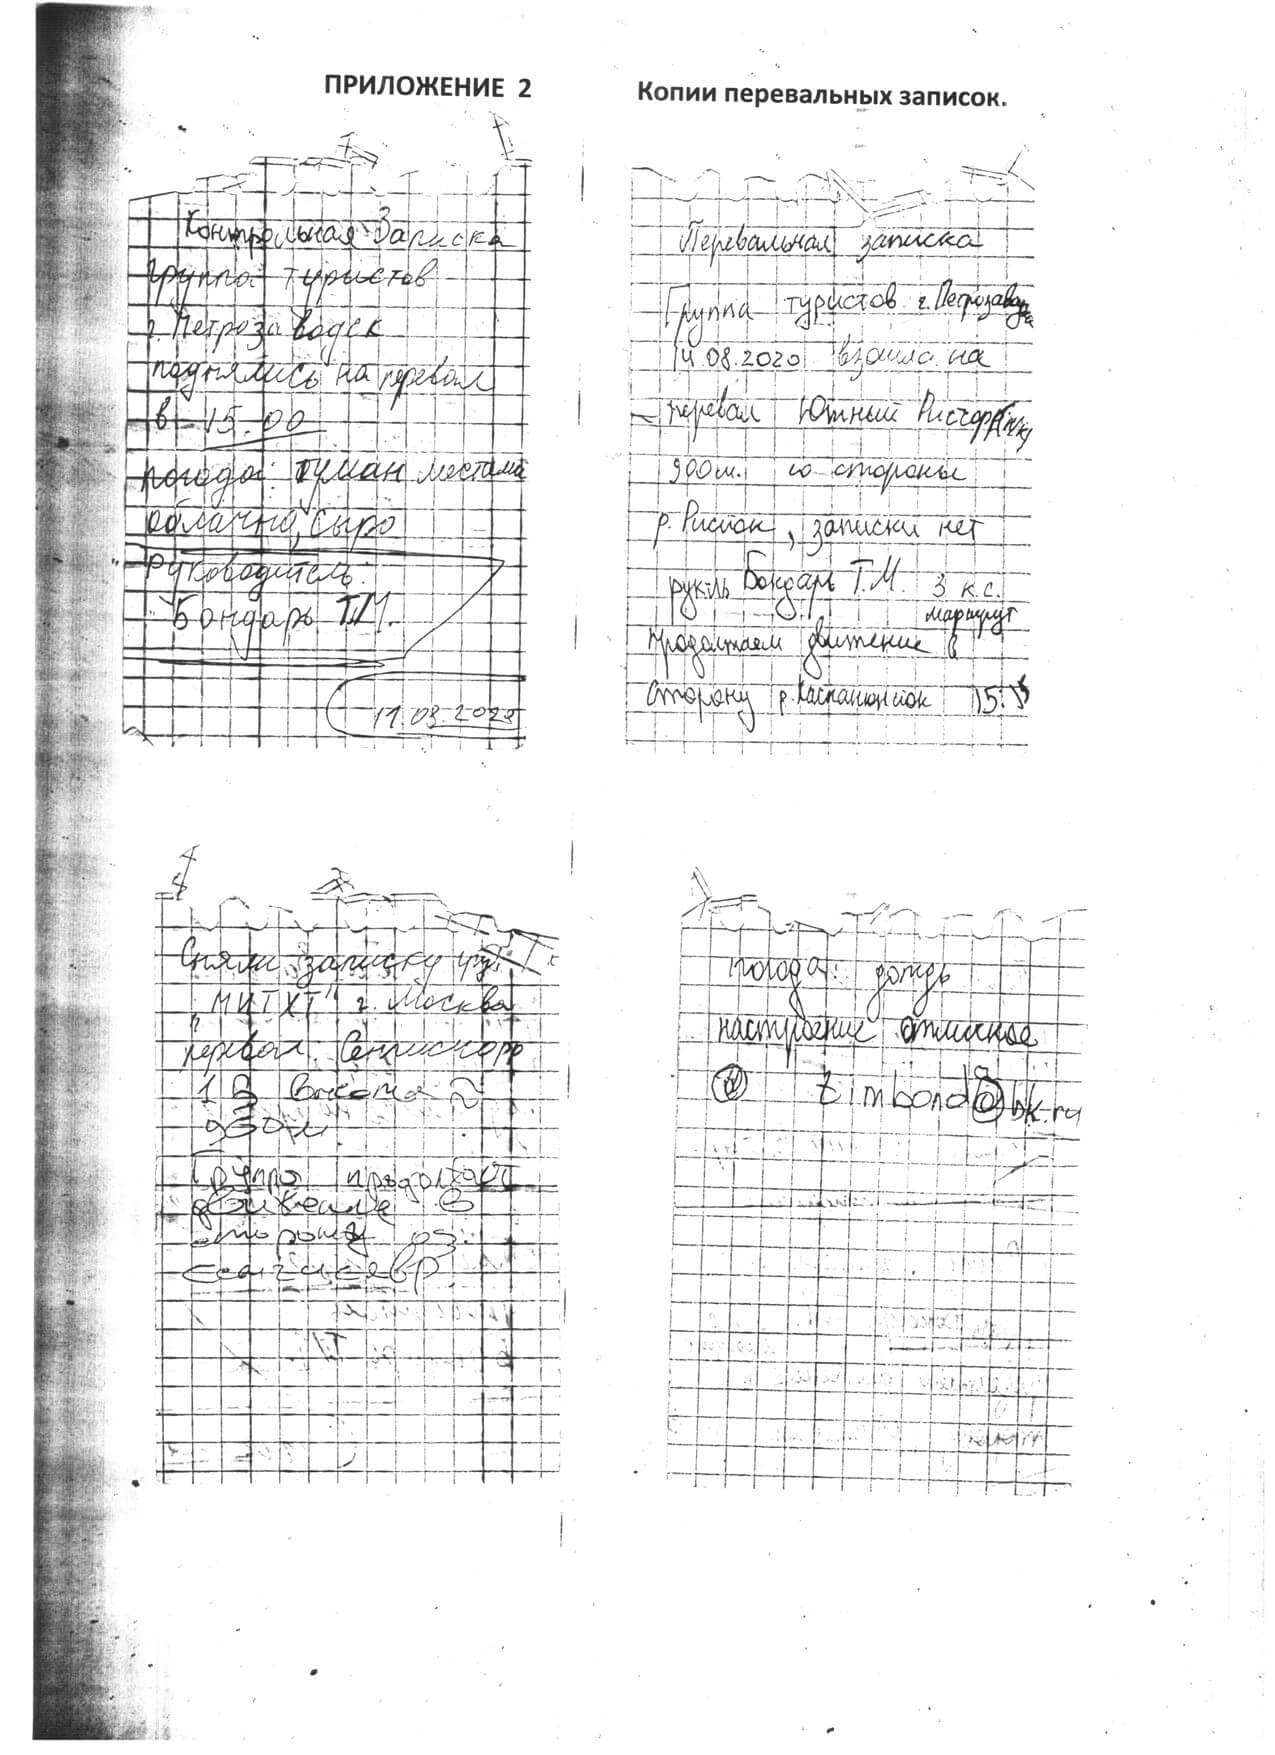 ПРИЛОЖЕНИЕ 2
Копии перевальных записок.
Контрольная Записка
Группа туристов
г. Петрозаводск
поднялись на перевал
в 15.00
погода: туман местами
облачно, сыро
Руководитель:
Бондарь Т.М.
11.08.2020
Перевальная записка
Группа туристов г. Петрозаводска
14.08.2020 взошла на
перевал Южный Рисчорр
900м. со стороны
р. Рисйок, записки нет
рук-ль Бондарь Т.М. 3 к.с.
маршрут
продолжаем движение в
сторону р. Каскаснюнйок 15:15
Сняли записку гр.
"МИТХТ" г. Москва
перевал Сенгисчорр
1Б высота ≈
950м.
Группа продолжает
движение в
сторону оз.
Сенгисявр
погода: дождь
настроение отличное
timbond@bk.ru